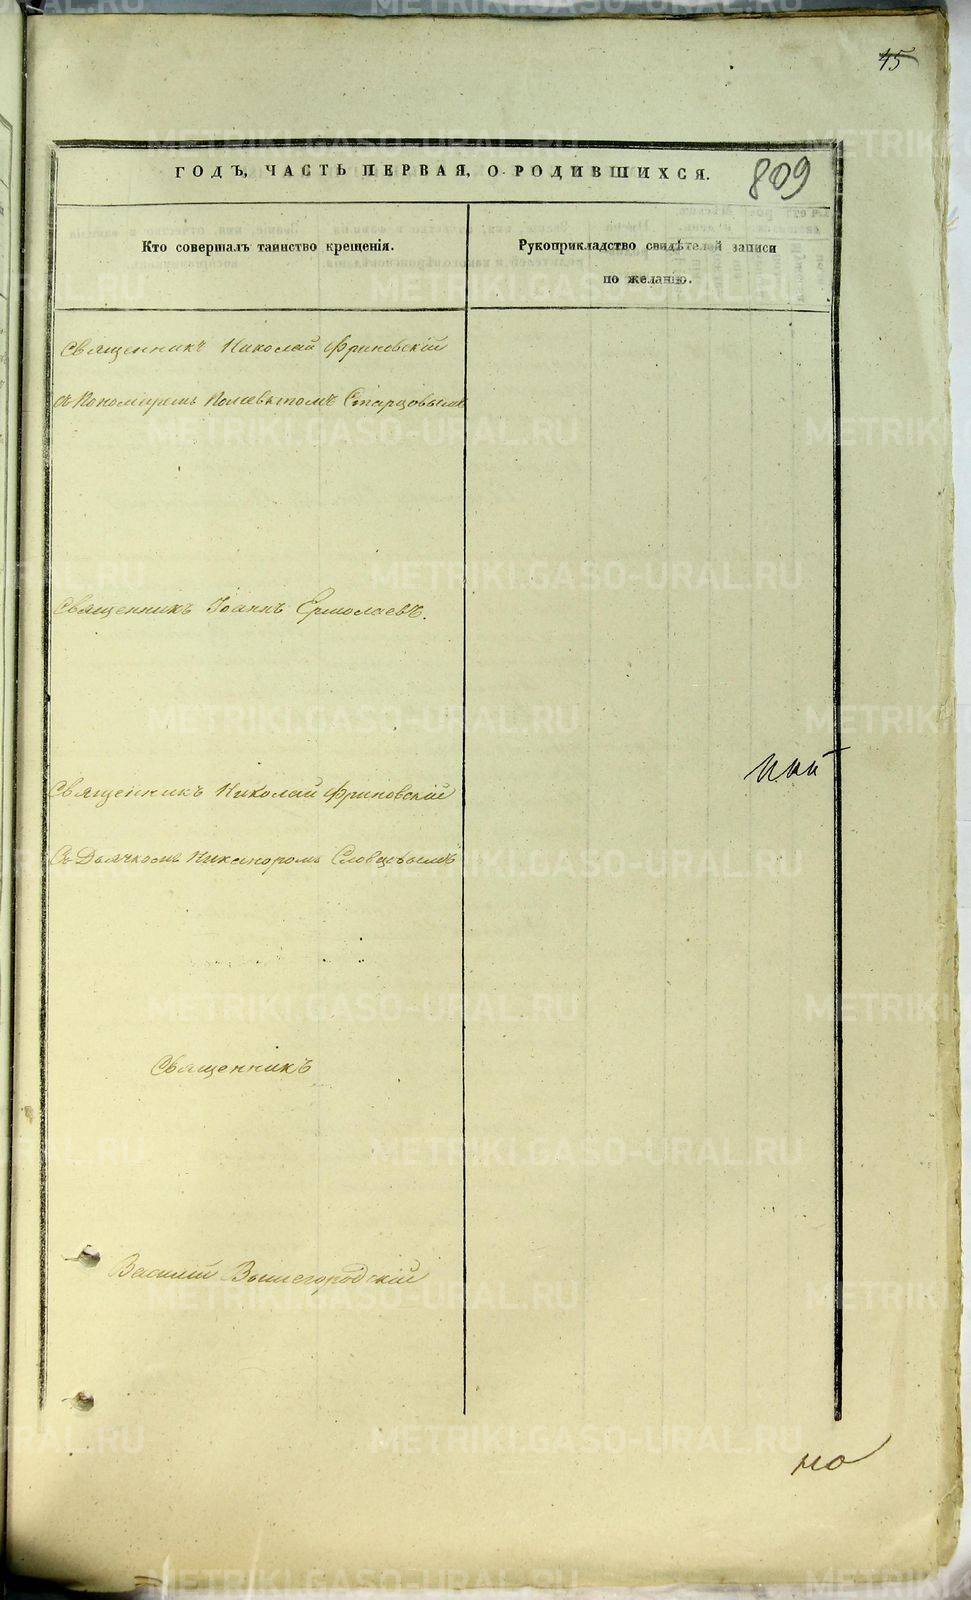 45
ГОДЪ, ЧАСТЬ ПЕРВАЯ, О РОДИВШИХСЯ.
809
Кто совершалъ таинство крещенія.
Рукоприкладство свидѣтелей записи
по желанію.
Священникъ Николай Фриновскій
съ Пономаремъ Старцовымъ
Священникъ Іоаннъ Ермолаевъ.
Священникъ Николай Фриновскій
Съ Дьячкомъ Никаноромъ Словцовымъ
Священникъ
Василій Вышегородскій
но
METRIKI.GASO-URAL.RU